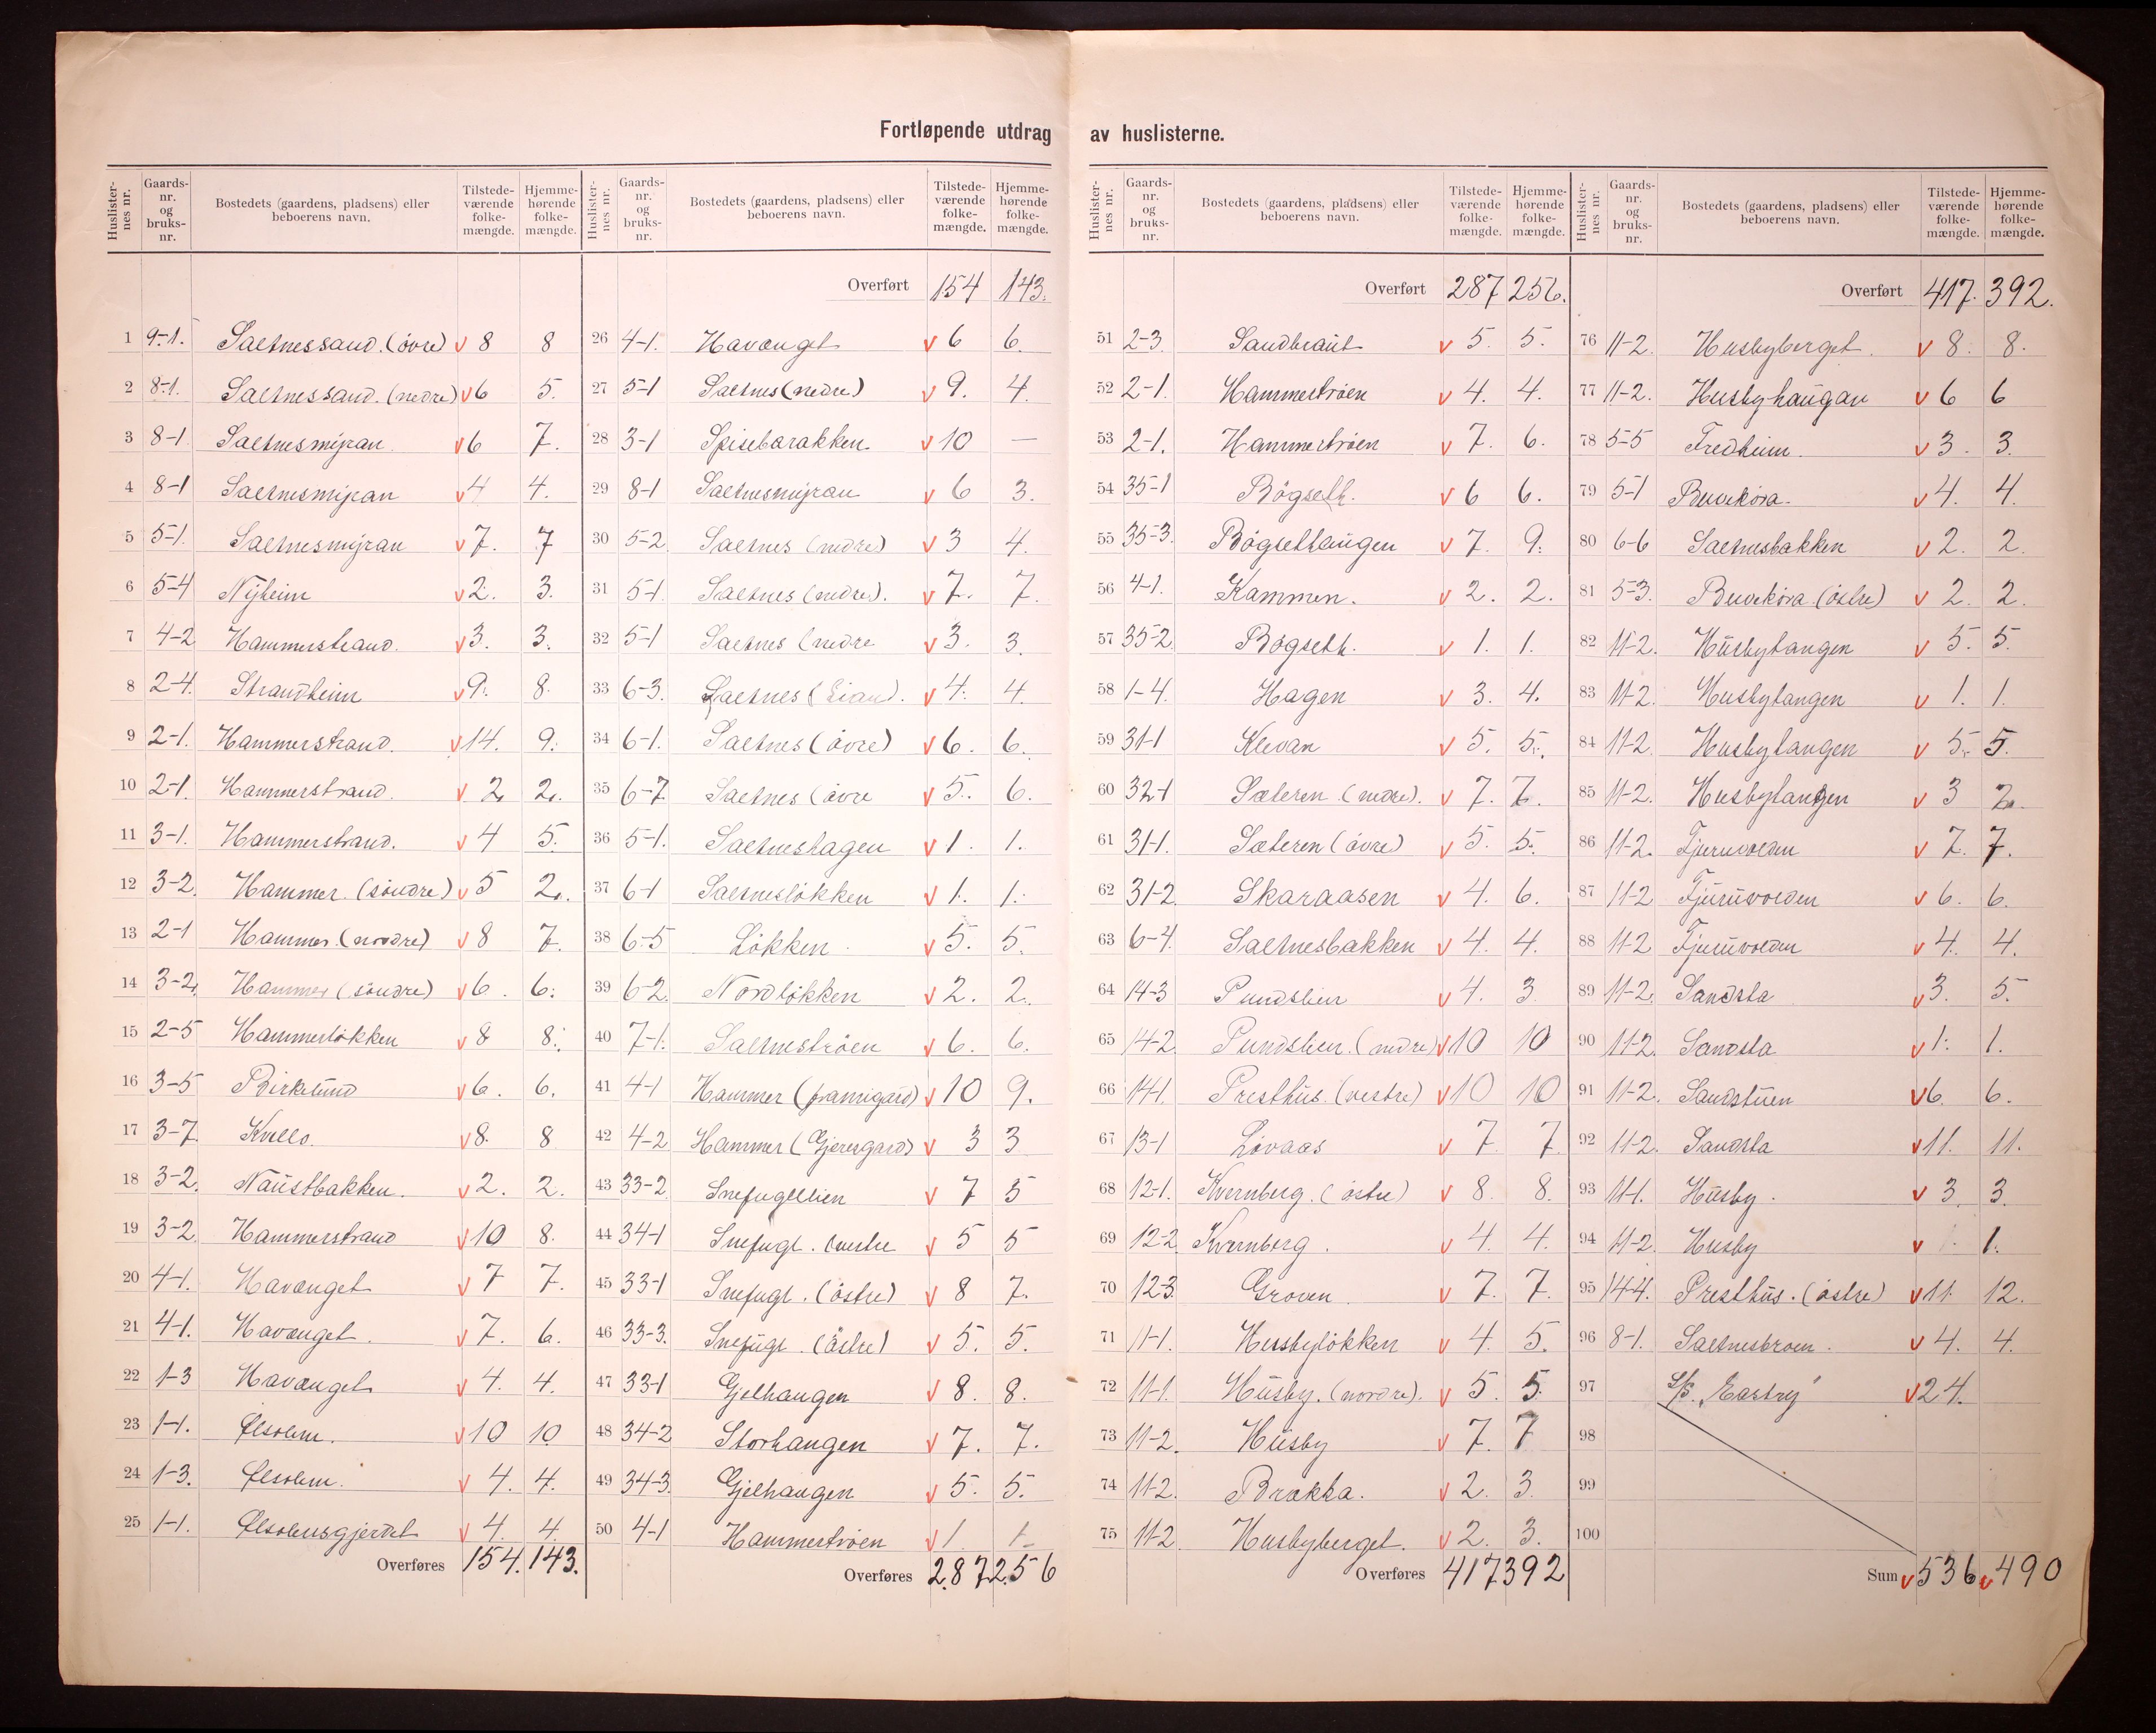 Fortløpende utdrag av huslisterne.
Huslister-nes nr. | Gaards-nr. og bruks-nr. | Bostedets (gaardens, pladsens) eller beboerens navn. | Tilstede-værende folke-mængde. | Hjemme-hørende folke-mængde.
1 9-1. Saltnessand. (övre) v 8 8
2 8-1. Saltnessand. (nedre) v 6 5.
3 8-1 Saltnesmyran v 6 7.
4 8-1 Saltnesmyran v 4 4.
5 5-1. Saltnesmyran v 7. 7
6 5-4 Nyheim v 2. 3.
7 4-2 Hammerstrand. v 3. 3.
8 2-4. Strandheim v 9. 8.
9 2-1. Hammerstrand. v 14. 9.
10 2-1. Hammerstrand. v 2. 2.
11 3-1. Hammerstrand. v 4 5.
12 3-2. Hammer. (söndre) v 5 2.
13 2-1 Hammer. (nordre) v 8 7.
14 3-2. Hammer (söndre) v 6. 6.
15 2-5 Hammerlökken v 8 8.
16 3-5 Birkelund v 6. 6.
17 3-7. Kvello. v 8. 8
18 3-2. Naustbakken. v 2. 2.
19 3-2. Hammerstrand v 10 8.
20 4-1. Havænget v 7 7.
21 4-1. Havænget. v 7. 6.
22 1-3 Havænget v 4. 4.
23 1-1. Ølsholm. v 10 10
24 1-3. Ølsholm. v 4. 4.
25 1-1. Ølsholmsgjerdet v 4. 4.
Overføres 154. 143.
Huslister-nes nr. | Gaards-nr. og bruks-nr. | Bostedets (gaardens, pladsens) eller beboerens navn. | Tilstede-værende folke-mængde. | Hjemme-hørende folke-mængde.
Overført 154 143.
26 4-1. Havænget v 6 6.
27 5-1 Saltnes (nedre) v 9. 4.
28 3-1 Spisebarakken. v 10 —
29 8-1 Saltnesmyran v 6 3.
30 5-2. Saltnes (nedre) v 3 4.
31 5-1. Saltnes (nedre). v 7. 7.
32 5-1 Saltnes (nedre v 3. 3.
33 6-3. Saltnes ( v 4. 4.
34 6-1. Saltnes (övre) v 6. 6.
35 6-7. Saltnes (övre v 5. 6.
36 5-1. Saltneshagen v 1. 1.
37 6-1 Saltneslökken v 1. 1.
38 6-5 Lökken. v 5. 5.
39 6-2. Nordlökken v 2. 2.
40 7-1. Saltneströen v 6. 6.
41 4-1 Hammer (framigård) v 10 9.
42 4-2 Hammer (Gjeresgård) v 3 3
43 33-2. Snefugllien v 7 5
44 34-1 Snefugl. (vestre v 5 5
45 33-1 Snefugl. (östre) v 8 7.
46 33-3. Snefugl. (östre) v 5. 5.
47 33-1 Gjelhaugen v 8. 8.
48 34-2 Storhaugen v 7. 7.
49 34-3. Gjelhaugen v 5. 5.
50 4-1 Hammertröen v 1. 1
Overføres 287 256
Huslister-nes nr. | Gaards-nr. og bruks-nr. | Bostedets (gaardens, pladsens) eller beboerens navn. | Tilstede-værende folke-mængde. | Hjemme-hørende folke-mængde.
Overført 287 256.
51 2-3. Sandbraut v 5. 5.
52 2-1. Hammertröen v 4. 4.
53 2-1. Hammertröen v 7. 6.
54 35-1 Bögseth. v 6 6.
55 35-3. Bögsethaugen v 7. 9.
56 4-1. Kammen. v 2. 2.
57 35-2. Bögseth. v 1. 1.
58 1-4. Hagen v 3. 4.
59 31-1 Klevan v 5. 5.
60 32-1 Sæteren (nedre). v 7. 7.
61 31-1. Sæteren (övre) v 5. 5.
62 31-2. Skaraasen v 4. 6.
63 6-4. Saltnesbakken v 4. 4.
64 14-3 Pundslien v 4. 3
65 14-2. Pundslien. (nedre) v 10 10
66 14-1. Presthus. (vestre) v 10 10
67 13-1 Lövaas v 7. 7.
68 12-1. Kvernberg. (östre) v 8. 8.
69 12-2. Kvernberg. v 4. 4.
70 12-3. Groven v 7. 7.
71 11-1. Husbylökken v 4. 5.
72 11-1. Husby. (nordre). v 5. 5.
73 11-2. Husby v 7. 7
74 11-2. Brækka. v 2. 3.
75 11-2. Husbyberget. v 2. 3.
Overføres 417 392
Huslister-nes nr. | Gaards-nr. og bruks-nr. | Bostedets (gaardens, pladsens) eller beboerens navn. | Tilstede-værende folke-mængde. | Hjemme-hørende folke-mængde.
Overført 417. 392.
76 11-2. Husbyberget. v 8. 8.
77 11-2. Husbyhaugan v 6 6
78 5-5 Fredheim. v 3. 3.
79 5-1 Buviköra. v 4. 4.
80 6-6 Saltnesbakken v 2. 2.
81 5-3. Buviköra (östre) v 2. 2.
82 11-2. Husbytangen v 5. 5.
83 11-2. Husbytangen v 1. 1.
84 11-2. Husbytangen v 5. 5.
85 11-2. Husbytangen v 3 2.
86 11-2. Fjæruvolden v 7. 7.
87 11-2 Fjæruvolden v 6. 6.
88 11-2 Fjæruvolden v 4. 4.
89 11-2. Sandsta v 3. 5.
90 11-2. Sandsta v 1. 1.
91 11-2. Sandstuen v 6. 6.
92 11-2. Sandsta v 11. 11.
93 11-1. Husby. v 3. 3.
94 11-2. Husby v 1. 1.
95 14-4. Presthus. (östre) v 11. 12.
96 8-1. Saltnesbroen. v 4. 4.
97 S/S. „Eastry" v 24.
98
99
100
Sum v 536 v 490